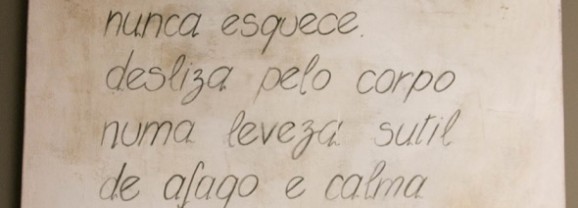 nunca esquece.
desliza pelo corpo
numa leveza sutil
de afago e calma